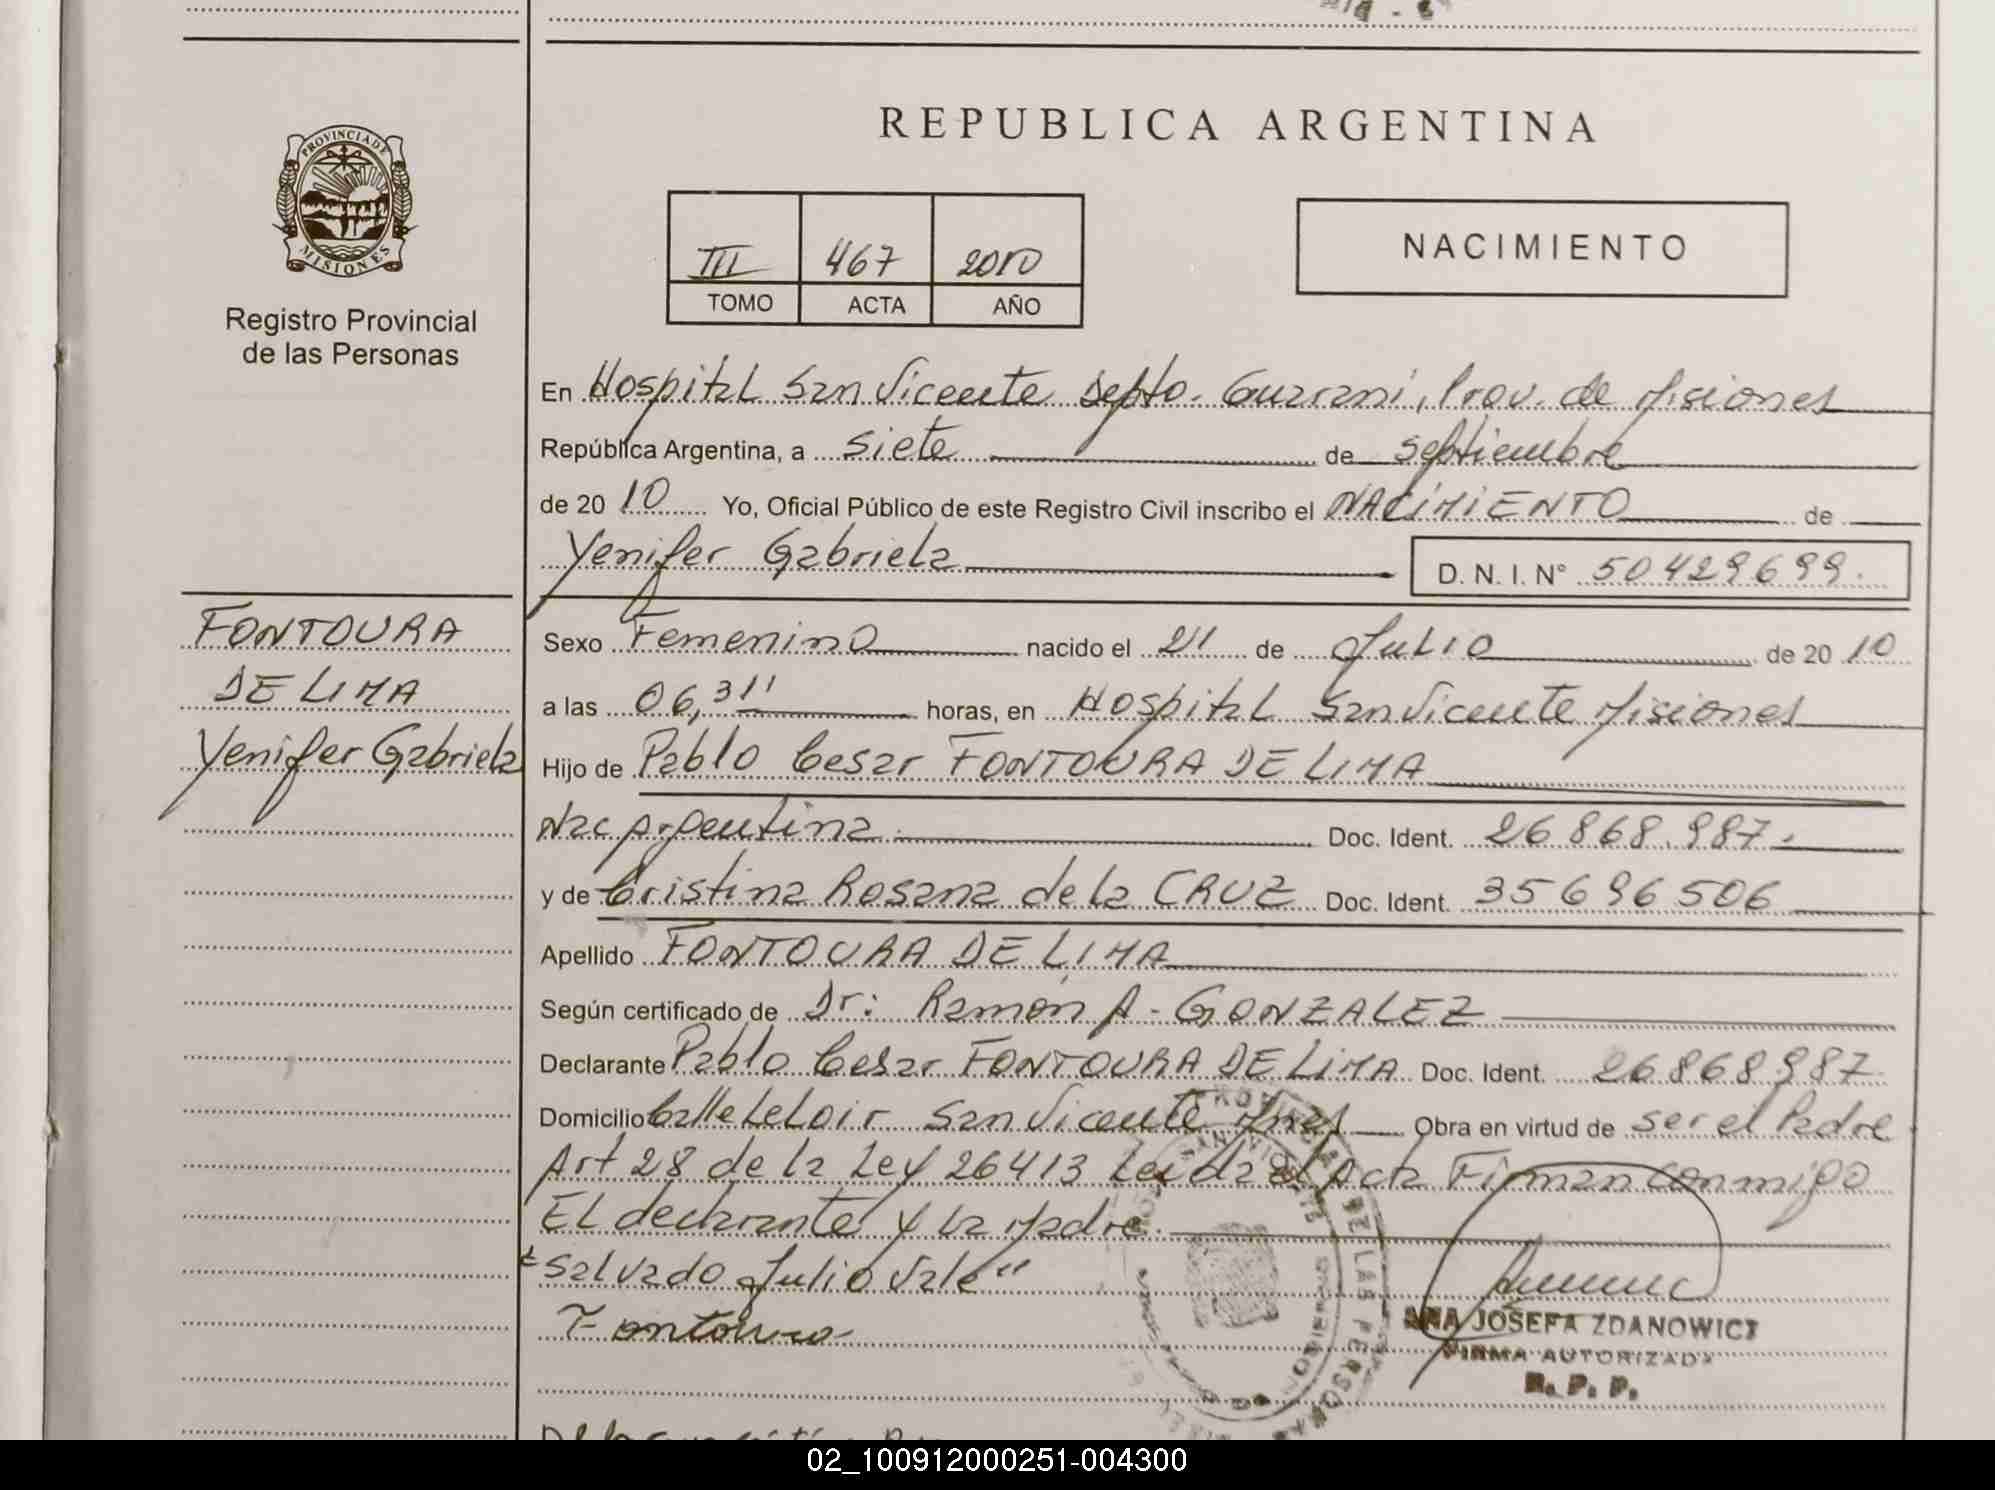 REPUBLICA ARGENTINA
PROVINCIA DE
MISIONES
Registro Provincial
de las Personas
III 467 2010
TOMO ACTA AÑO
NACIMIENTO
En Hospital San Vicente Depto. Guarani, Prov. de Misiones
República Argentina, a siete de septiembre
de 20 10 Yo, Oficial Público de este Registro Civil inscribo el NACIMIENTO de
Yenifer Gabriela D. N. I. N° 50429699.
FONTOURA
DE LIMA
Yenifer Gabriela
Sexo Femenino nacido el 21 de Julio de 20 10
a las 06,31' horas, en Hospital San Vicente Misiones
Hijo de Pablo Cesar FONTOURA DE LIMA
Nac Argentina. Doc. Ident. 26868.987.
y de Cristina Rosana de la CRUZ Doc. Ident. 35696506
Apellido FONTOURA DE LIMA
Según certificado de Dr: Ramón A. GONZALEZ
Declarante Pablo Cesar FONTOURA DE LIMA Doc. Ident. 26868987
Domicilio Calle Leloir San Vicente Mnes Obra en virtud de ser el Padre
Art 28 de la Ley 26413 Leida el Acta Firman conmigo
El declarante y la Madre.
"Salvado Julio Vale"
Fontoura
ANA JOSEFA ZDANOWICZ
FIRMA AUTORIZADA
R. P. P.
DE LAS PERSONAS
02_100912000251-004300